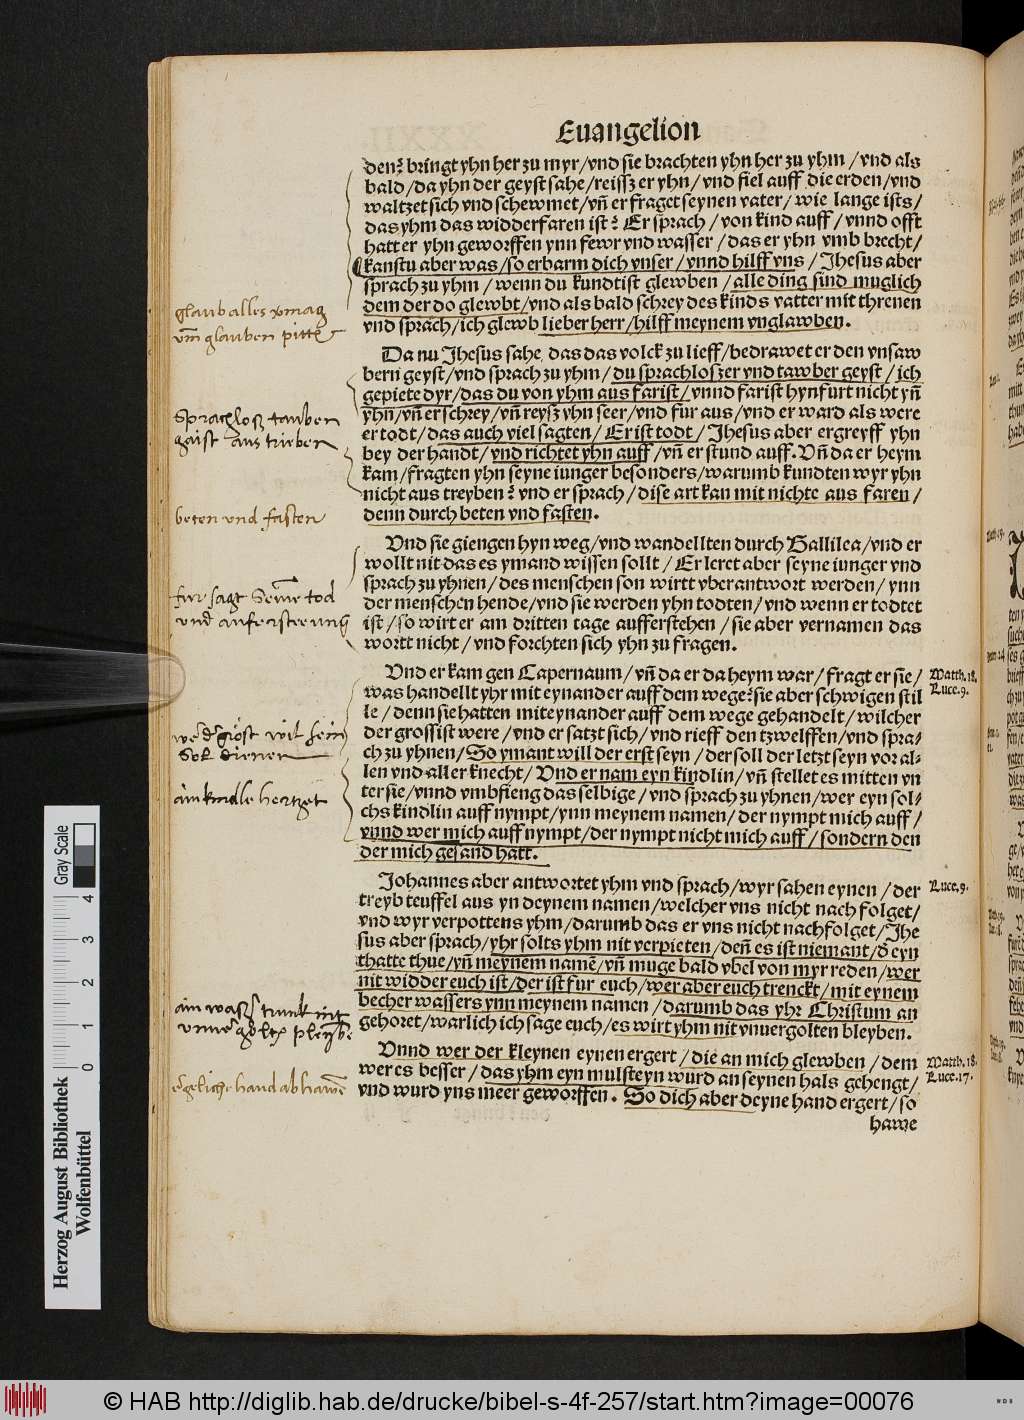 Euangelion
den? bringt yhn her zu myr/vnd sie brachten yhn her zu yhm /vnd als
bald/da yhn der geyst sahe/reissz er yhn/ vnd fiel auff die erden/vnd
waltzet sich vnd schewmet/vñ er fraget seynen vater/ wie lange ists/
das yhm das widderfaren ist? Er sprach / von kind auff / vnnd offt
hatt er yhn geworffen ynn fewr vnd wasser /das er yhn vmb brecht/
kanstu aber was/so erbarm dich vnser/vnnd hilff vns/ Jhesus aber
sprach zu yhm / wenn du kundtist glewben /alle ding sind muglich
dem der do glewbt/vnd als bald schrey des kinds vatter mit threnen
vnd sprach/ich glewb lieber herr/hilff meynem vnglawben.
Da nu Jhesus sahe, das das volck zu lieff/bedrawet er den vnsaw
bern geyst/vnd sprach zu yhm/du sprachloszer vnd tawber geyst /ich
gepiete dyr/das du von yhm aus farist/vnnd farist hynfurt nicht yñ
yhn/vñ er schrey/vñ reysz yhn seer/vnd fur aus/vnd er ward als were
er todt/das auch viel sagten/ Er ist todt/ Jhesus aber ergreyff yhn
bey der handt/vnd richtet yhn auff/vñ er stund auff. Vñ da er heym
kam/fragten yhn seyne iunger besonders/warumb kundten wyr yhn
nicht aus treyben? vnd er sprach/dise art kan mit nichte aus faren/
denn durch beten vnd fasten.
Vnd sie giengen hyn weg/vnd wandellten durch Gallilea/vnd er
wollt nit das es ymand wissen sollt/ Er leret aber seyne iunger vnd
sprach zu yhnen/des menschen son wirtt vberantwort werden/ ynn
der menschen hende/vnd sie werden yhn todten/vnd wenn er todtet
ist/so wirt er am dritten tage aufferstehen/sie aber vernamen das
wortt nicht/vnd forchten sich yhn zu fragen.
Vnd er kam gen Capernaum/vñ da er da heym war/fragt er sie/
was handellt yhr mit eynander auff dem wege? sie aber schwigen stil
le/denn sie hatten miteynander auff dem wege gehandelt/wilcher
der grossist were/vnd er satzt sich/vnd rieff den tzwelffen/vnd spra-
ch zu yhnen/So ymant will der erst seyn/der soll der letzt seyn vor al-
len vnd aller knecht/Vnd er nam eyn kindlin/vñ stellet es mitten vn
ter sie/vnnd vmbfieng das selbige/vnd sprach zu yhnen/wer eyn sol-
chs kindlin auff nympt/ynn meynem namen/der nympt mich auff/
vnnd wer mich auff nympt/der nympt nicht mich auff/sondern den
der mich gesand hatt.
Johannes aber antwortet yhm vnd sprach/wyr sahen eynen /der
treyb teuffel aus yn deynem namen/welcher vns nicht nach folget/
vnd wyr verpottens yhm/darumb das er vns nicht nachfolget/Jhe
sus aber sprach/yhr solts yhm nit verpieten/deñ es ist niemant/d̕ eyn
thatte thue/yñ meynem namē/vñ muge bald vbel von myr reden/wer
nit widder euch ist/der ist fur euch/wer aber euch trenckt/mit eynem
becher wassers ynn meynem namen/darumb das yhr Christum an
gehoret/warlich ich sage euch/es wirt yhm nit vnuergolten bleyben.
Vnnd wer der kleynen eynen ergert/die an mich glewben/dem
wer es besser/das yhm eyn mulsteyn wurd an seynen hals gehengt/
vnd wurd yns meer geworffen. So dich aber deyne hand ergert/so
hawe
Matth.18.
Luce.9.
Luce.9.
Matth.18.
Luce.17.
glaub alles vermag
vm̄ glauben pitten
Sprachlosz tauben
gaist aus trieben
beten vnd fasten
fur sagt seinen tod
vnd aufersteeung
sol dienen
ain kindle hertzet
ain wasser trunk nit
hand abhawen
Herzog August Bibliothek
Wolfenbüttel
0 1 2 3 4
Gray Scale
© HAB http://diglib.hab.de/drucke/bibel-s-4f-257/start.htm?image=00076